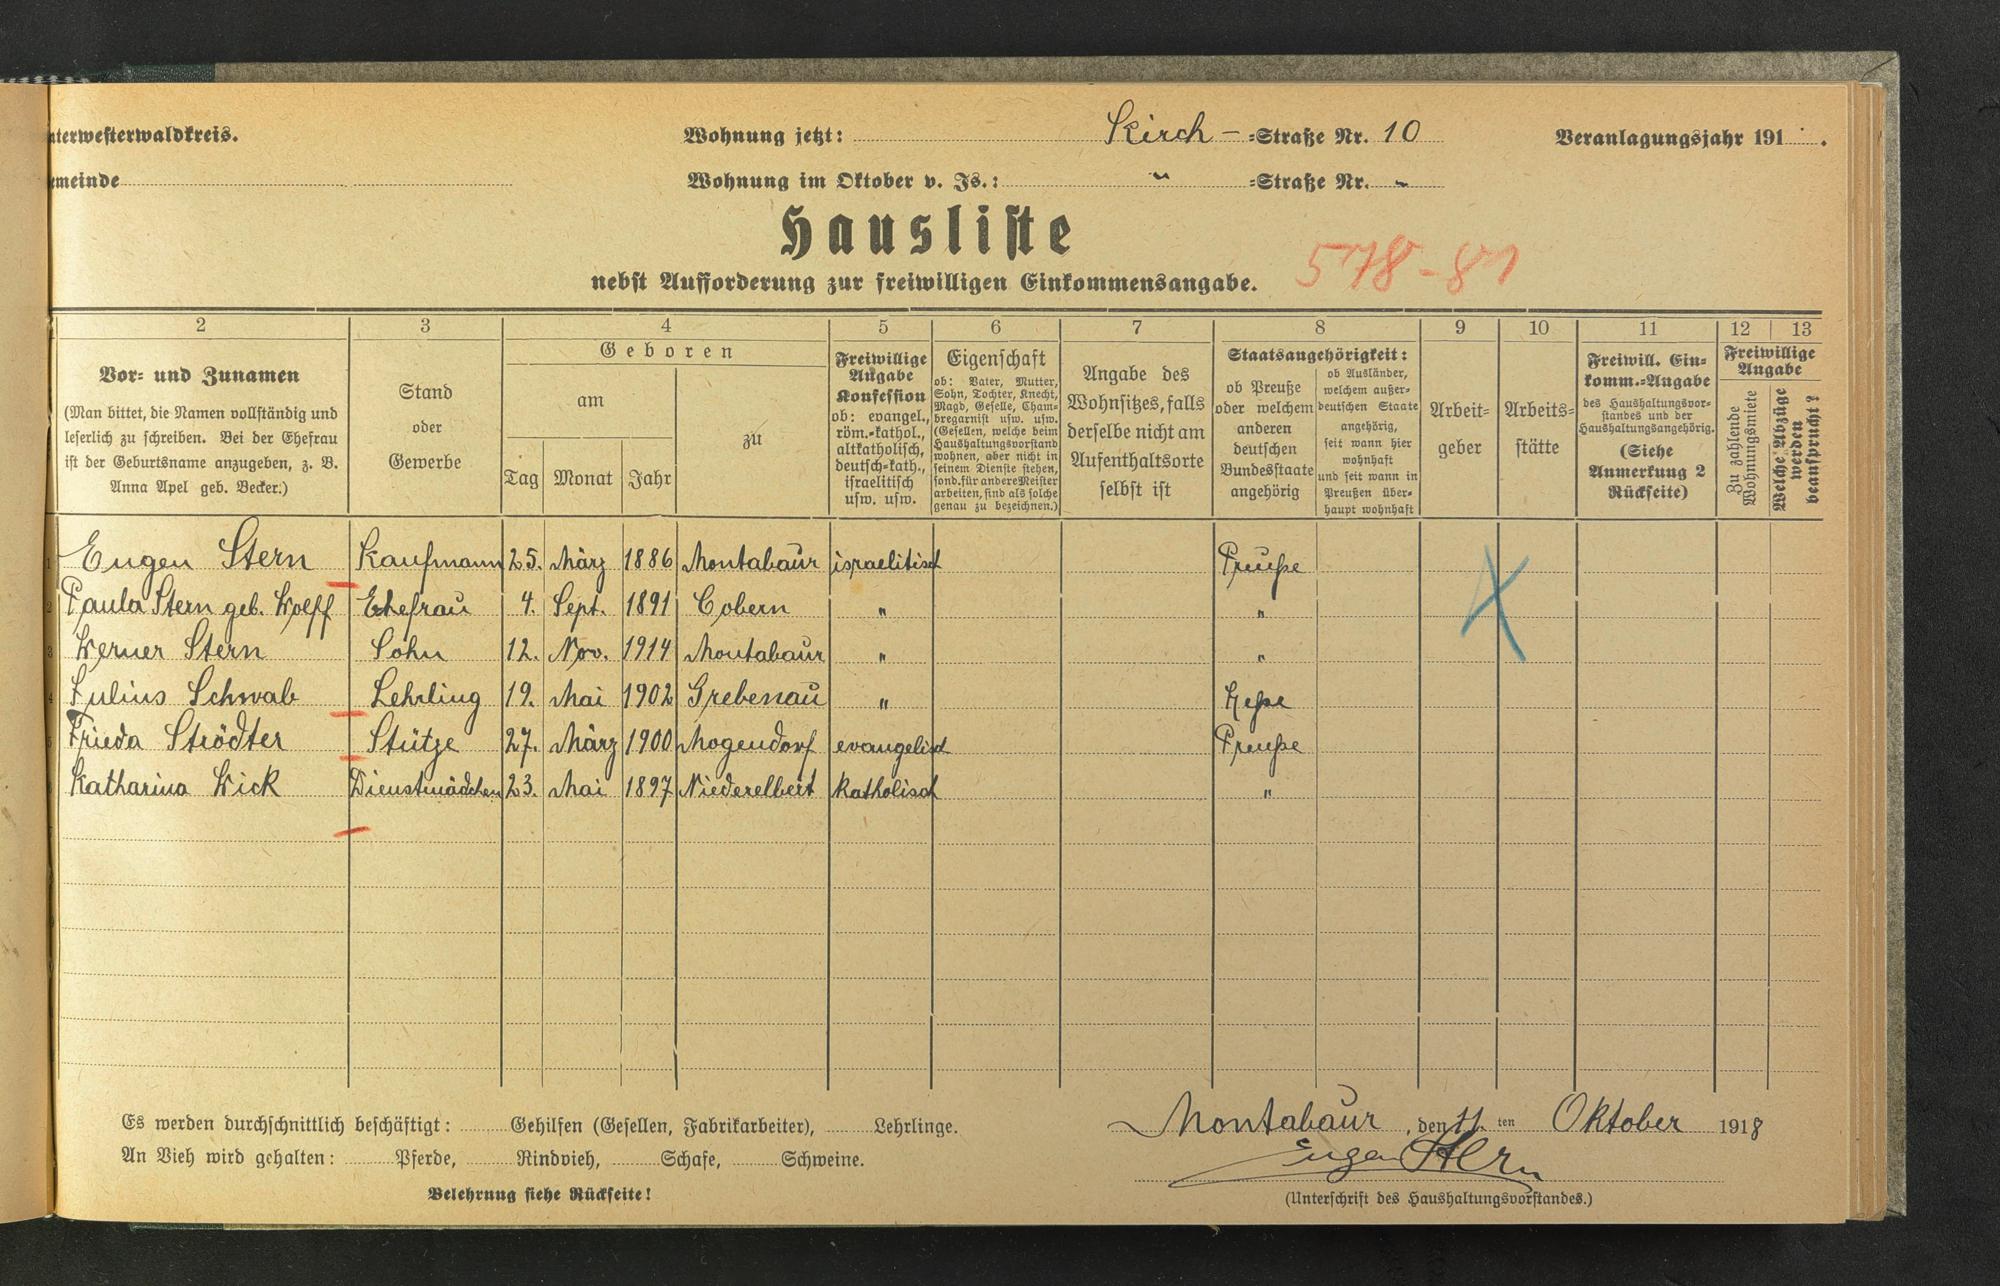 nterwesterwaldkreis. Wohnung jetzt: Kirch- =Straße Nr. 10 Veranlagungsjahr 191 .
emeinde Wohnung im Oktober v. Js.: " =Straße Nr. "
Hausliste
nebst Aufforderung zur freiwilligen Einkommensangabe. 578-81
2 3 4 5 6 7 8 9 10 11 12 13
Vor- und Zunamen
(Man bittet, die Namen vollständig und
leserlich zu schreiben. Bei der Ehefrau
ist der Geburtsname anzugeben, z. B.
Anna Apel geb. Becker.)
Stand
oder
Gewerbe
Geboren
am
Tag Monat Jahr
zu
Freiwillige
Angabe
Konfession
ob: evangel.,
röm.-kathol.,
altkatholisch,
deutsch-kath.,
israelitisch
usw. usw.
Eigenschaft
ob: Vater, Mutter,
Sohn, Tochter, Knecht,
Magd, Geselle, Cham-
bregarnist usw. usw.
(Gesellen, welche beim
Haushaltungsvorstand
wohnen, aber nicht in
seinem Dienste stehen,
sond. für andere Meister
arbeiten, sind als solche
genau zu bezeichnen.)
Angabe des
Wohnsitzes, falls
derselbe nicht am
Aufenthaltsorte
selbst ist
Staatsangehörigkeit:
ob Preuße
oder welchem
anderen
deutschen
Bundesstaate
angehörig
ob Ausländer,
welchem außer-
deutschen Staate
angehörig,
seit wann hier
wohnhaft
und seit wann in
Preußen über-
haupt wohnhaft
Arbeit-
geber
Arbeits-
stätte
Freiwill. Ein-
komm.-Angabe
des Haushaltungsvor-
standes und der
Haushaltungsangehörig.
(Siehe
Anmerkung 2
Rückseite)
Freiwillige
Angabe
Zu zahlende
Wohnungsmiete
Welche Abzüge
werden
beansprucht?
1 Eugen Stern Kaufmann 25. März 1886 Montabaur israelitisch Preuße
2 Paula Stern geb. Wolff Ehefrau 4. Sept. 1891 Cobern " "
3 Werner Stern Sohn 12. Nov. 1914 Montabaur " "
4 Julius Schwab Lehrling 19. Mai 1902 Grebenau " Hesse
5 Frieda Strödter Stütze 27. März 1900 Mogendorf evangelisch Preuße
6 Katharina Wick Dienstmädchen 23. Mai 1897 Niederelbert katholisch "
Es werden durchschnittlich beschäftigt: Gehilfen (Gesellen, Fabrikarbeiter), Lehrlinge.
An Vieh wird gehalten: Pferde, Rindvieh, Schafe, Schweine.
Belehrung siehe Rückseite!
Montabaur, den 11. ten Oktober 1918
Eugen Stern
(Unterschrift des Haushaltungsvorstandes.)